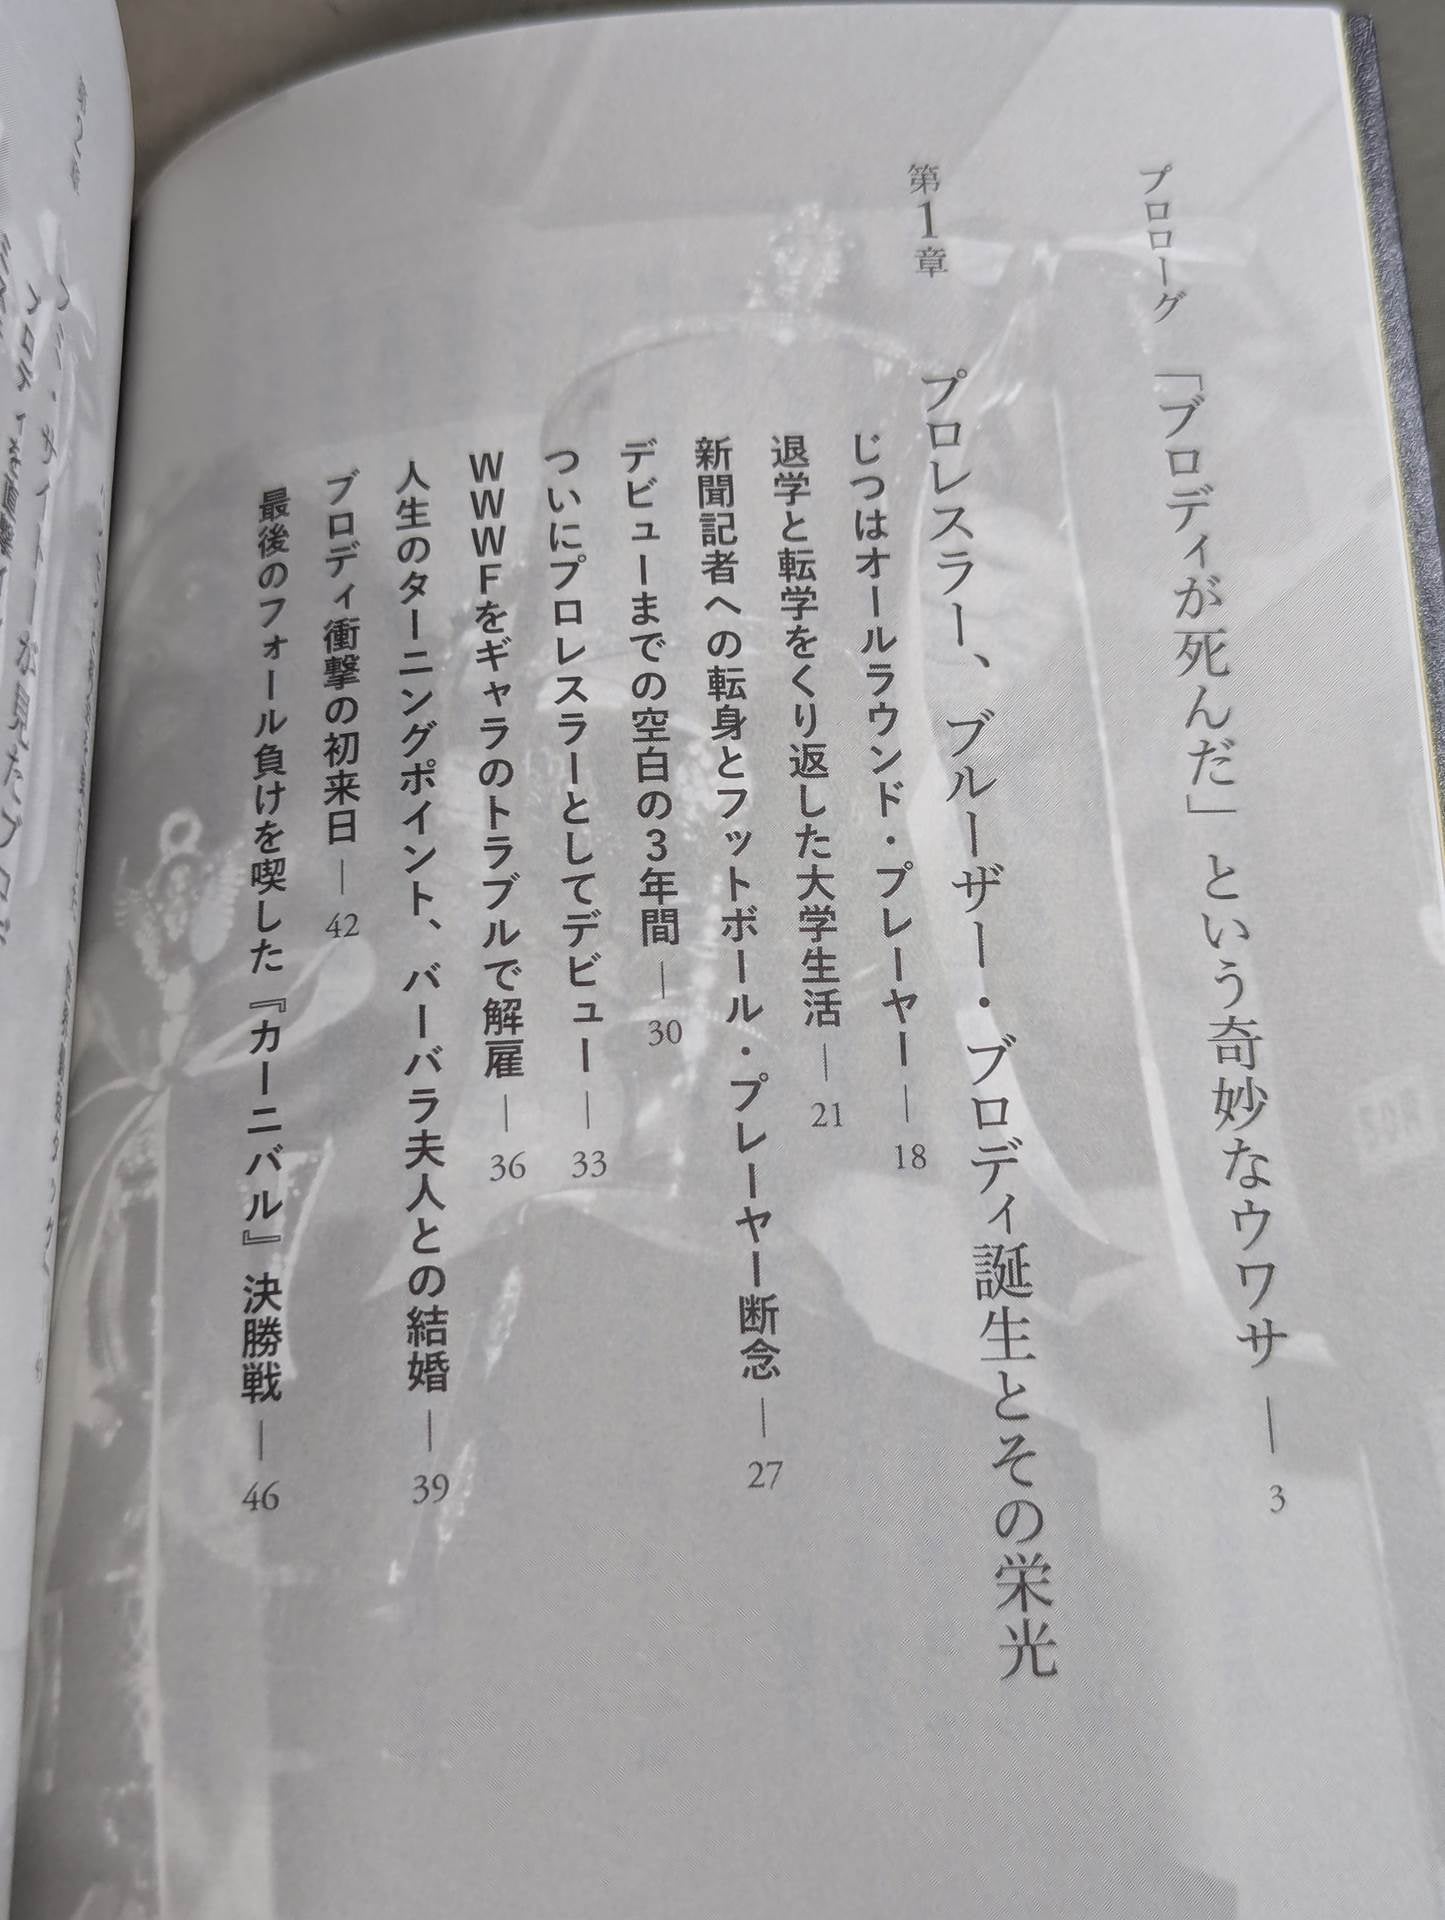 プロローグ 「ブロディが死んだ」という奇妙なウワサ — 3
第1章 プロレスラー、ブルーザー・ブロディ誕生とその栄光
じつはオールラウンド・プレーヤー — 18
退学と転学をくり返した大学生活 — 21
新聞記者への転身とフットボール・プレーヤー断念 — 27
デビューまでの空白の3年間 — 30
ついにプロレスラーとしてデビュー — 33
WWWFをギャラのトラブルで解雇 — 36
人生のターニングポイント、バーバラ夫人との結婚 — 39
ブロディ衝撃の初来日 — 42
最後のフォール負けを喫した『カーニバル』決勝戦 — 46
第2章